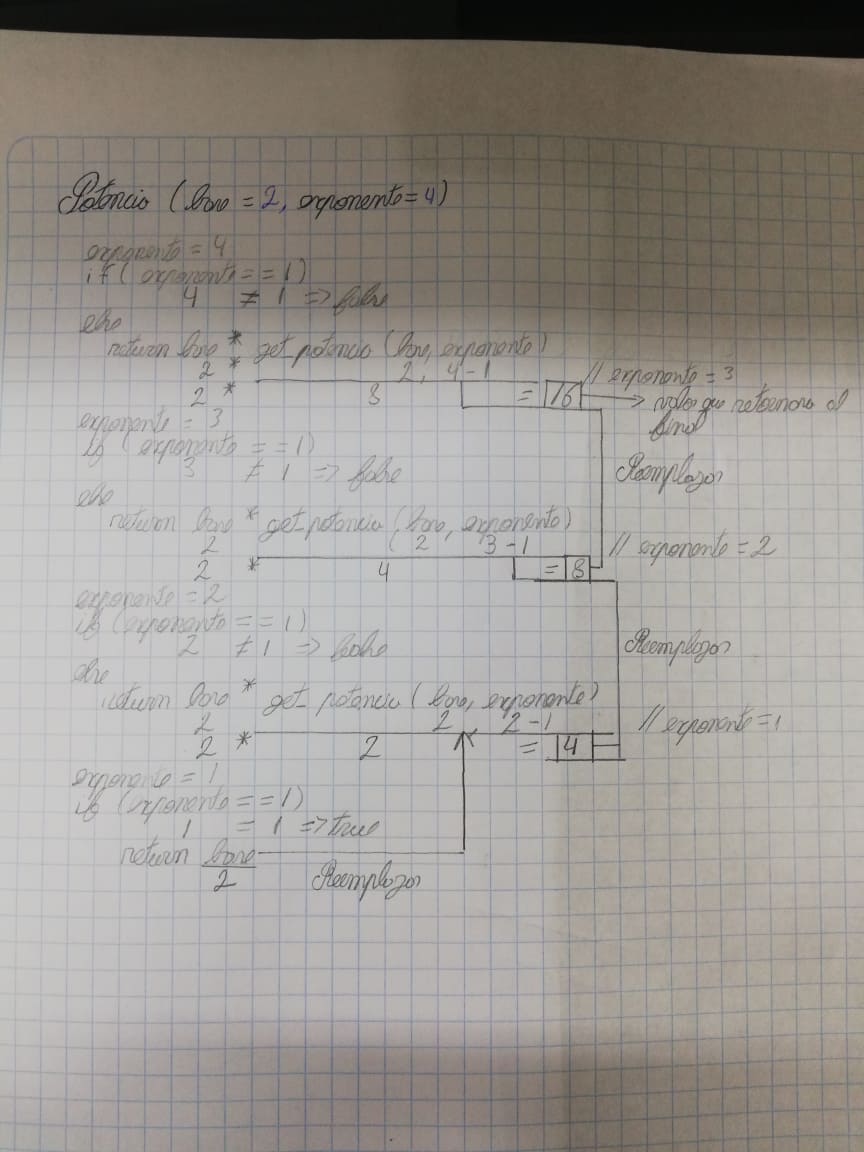 Potencia (base = 2, exponente = 4)
exponente = 4
if (exponente == 1)
4 ≠ 1 => false
else
return base * get_potencia (base, exponente)
2 * 2, 4-1 // exponente = 3
2 * 8 = 16 → valor que retornara al final
exponente = 3
if (exponente == 1)
3 ≠ 1 => false
Reemplazar
else
return base * get_potencia (base, exponente)
2 (2 3-1 // exponente = 2
2 * 4 = 8
exponente = 2
if (exponente == 1)
2 ≠ 1 => false
Reemplazar
else
return base * get_potencia (base, exponente)
2 2 2-1 // exponente = 1
2 * 2 = 4
exponente = 1
if (exponente == 1)
1 = 1 => true
return base
2 Reemplazar